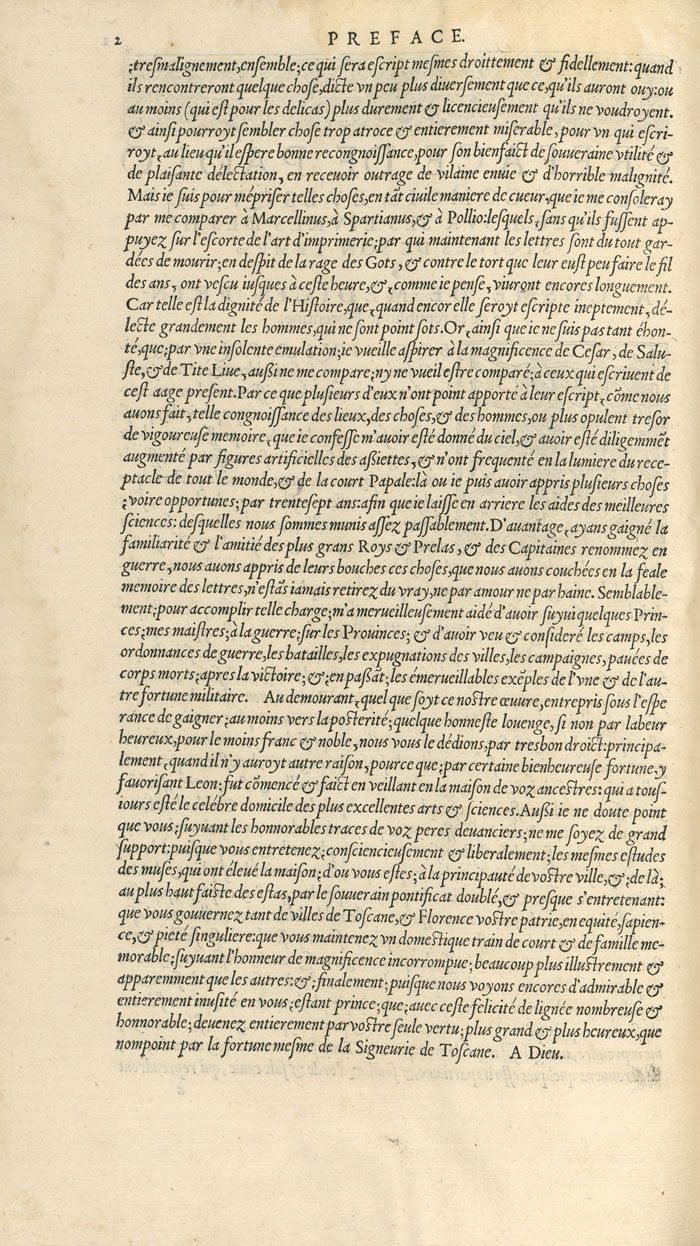 2 PREFACE.
;tresmalignement,ensemble;ce qui sera escript mesmes droittement & fidellement: quand
ils rencontreront quelque chose,dicte vn peu plus diuersement que ce,qu'ils auront ouy:ou
au moins (qui est pour les delicas) plus durement & licencieusement qu'ils ne voudroyent.
& ainsi pourroyt sembler chose trop atroce & entierement miserable, pour vn qui escri-
royt, au lieu qu'il espere bonne recongnoissance,pour son bienfaict de souueraine vtilité &
de plaisante délectation, en receuoir outrage de vilaine enuie & d'horrible malignité.
Mais ie suis pour mépriser telles choses,en tāt ciuile maniere de cueur,que ie me consoleray
par me comparer à Marcellinus,à Spartianus,& à Pollio:lesquels, sans qu'ils fussent ap-
puyez sur l'escorte de l'art d'imprimerie;par qui maintenant les lettres sont du tout gar-
dées de mourir;en despit de la rage des Gots, & contre le tort que leur eust peu faire le fil
des ans, ont vescu iusques à ceste heure,&,comme ie pense, viuront encores longuement.
Car telle est la dignité de l'Histoire,que,quand encor elle seroyt escripte ineptement, dé-
lecte grandement les hommes,qui ne sont point sots.Or, ainsi que ie ne suis pas tant éhon-
té,que;par vne insolente emulation;ie vueille aspirer à la magnificence de Cesar, de Salu-
ste,& de Tite Liue, außi ne me compare;ny ne vueil estre comparé;à ceux qui escriuent de
cest aage present.Par ce que plusieurs d'eux n'ont point apporté à leur escript, cōme nous
auons fait, telle congnoissance des lieux,des choses,& des hommes,ou plus opulent tresor
de vigoureuse memoire, que ie confesse m'auoir esté donné du ciel,& auoir esté diligemmēt
augmenté par figures artificielles des aßiettes, & n'ont frequenté en la lumiere du rece-
ptacle de tout le monde,& de la court Papale:là ou ie puis auoir appris plusieurs choses
;voire opportunes;par trentesept ans:afin que ie laisse en arriere les aides des meilleures
sciences: desquelles nous sommes munis assez passablement.D'auantage, ayans gaigné la
familiarité & l'amitié des plus grans Roys & Prelas, & des Capitaines renommez en
guerre, nous auons appris de leurs bouches ces choses,que nous auons couchées en la feale
memoire des lettres,n'estās iamais retirez du vray,ne par amour ne par haine. Semblable-
ment;pour accomplir telle charge;m'a merueilleusement aidé d'auoir suyui quelques Prin-
ces;mes maistres;à la guerre;sur les Prouinces; & d'auoir veu & consideré les camps,les
ordonnances de guerre,les batailles,les expugnations des villes,les campaignes, pauées de
corps morts;apres la victoire; &;en passāt;les émerueillables exēples de l'vne & de l'au-
tre fortune militaire. Au demourant, quel que soyt ce nostre œuure,entrepris sous l'espe
rance de gaigner;au moins vers la posterité;quelque honneste louenge, si non par labeur
heureux,pour le moins franc & noble, nous vous le dédions,par tresbon droict:principa-
lement, quand il n'y auroyt autre raison, pource que;par certaine bienheureuse fortune,y
fauorisant Leon;fut cōmencé & faict en veillant en la maison de voz ancestres: qui a tous-
iours esté le celébre domicile des plus excellentes arts & sciences.Außi ie ne doute point
que vous;suyuant les honnorables traces de voz peres deuanciers;ne me soyez de grand
support:puisque vous entretenez;consciencieusement & liberalement;les mesmes estudes
des muses,qui ont éleué la maison;d'ou vous estes;à la principauté de vostre ville,&;de là;
au plus haut faiste des estas,par le souuerain pontificat doublé,& presque s'entretenant:
que vous gouuernez tant de villes de Toscane,& Florence vostre patrie,en equité,sapien-
ce,& pieté singuliere:que vous maintenez vn domestique train de court & de famille me-
morable;suyuant l'honneur de magnificence incorrompue; beaucoup plus illustrement &
apparemment que les autres:&;finalement;puisque nous voyons encores d'admirable &
entierement inusité en vous;estant prince;que;auec ceste felicité de lignée nombreuse &
honnorable; deuenez entierement par vostre seule vertu;plus grand & plus heureux,que
nompoint par la fortune mesme de la Signeurie de Toscane. A Dieu.